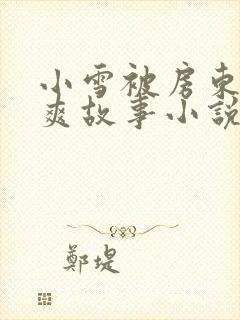 小雪被房東
爽故事小說
鄭堤